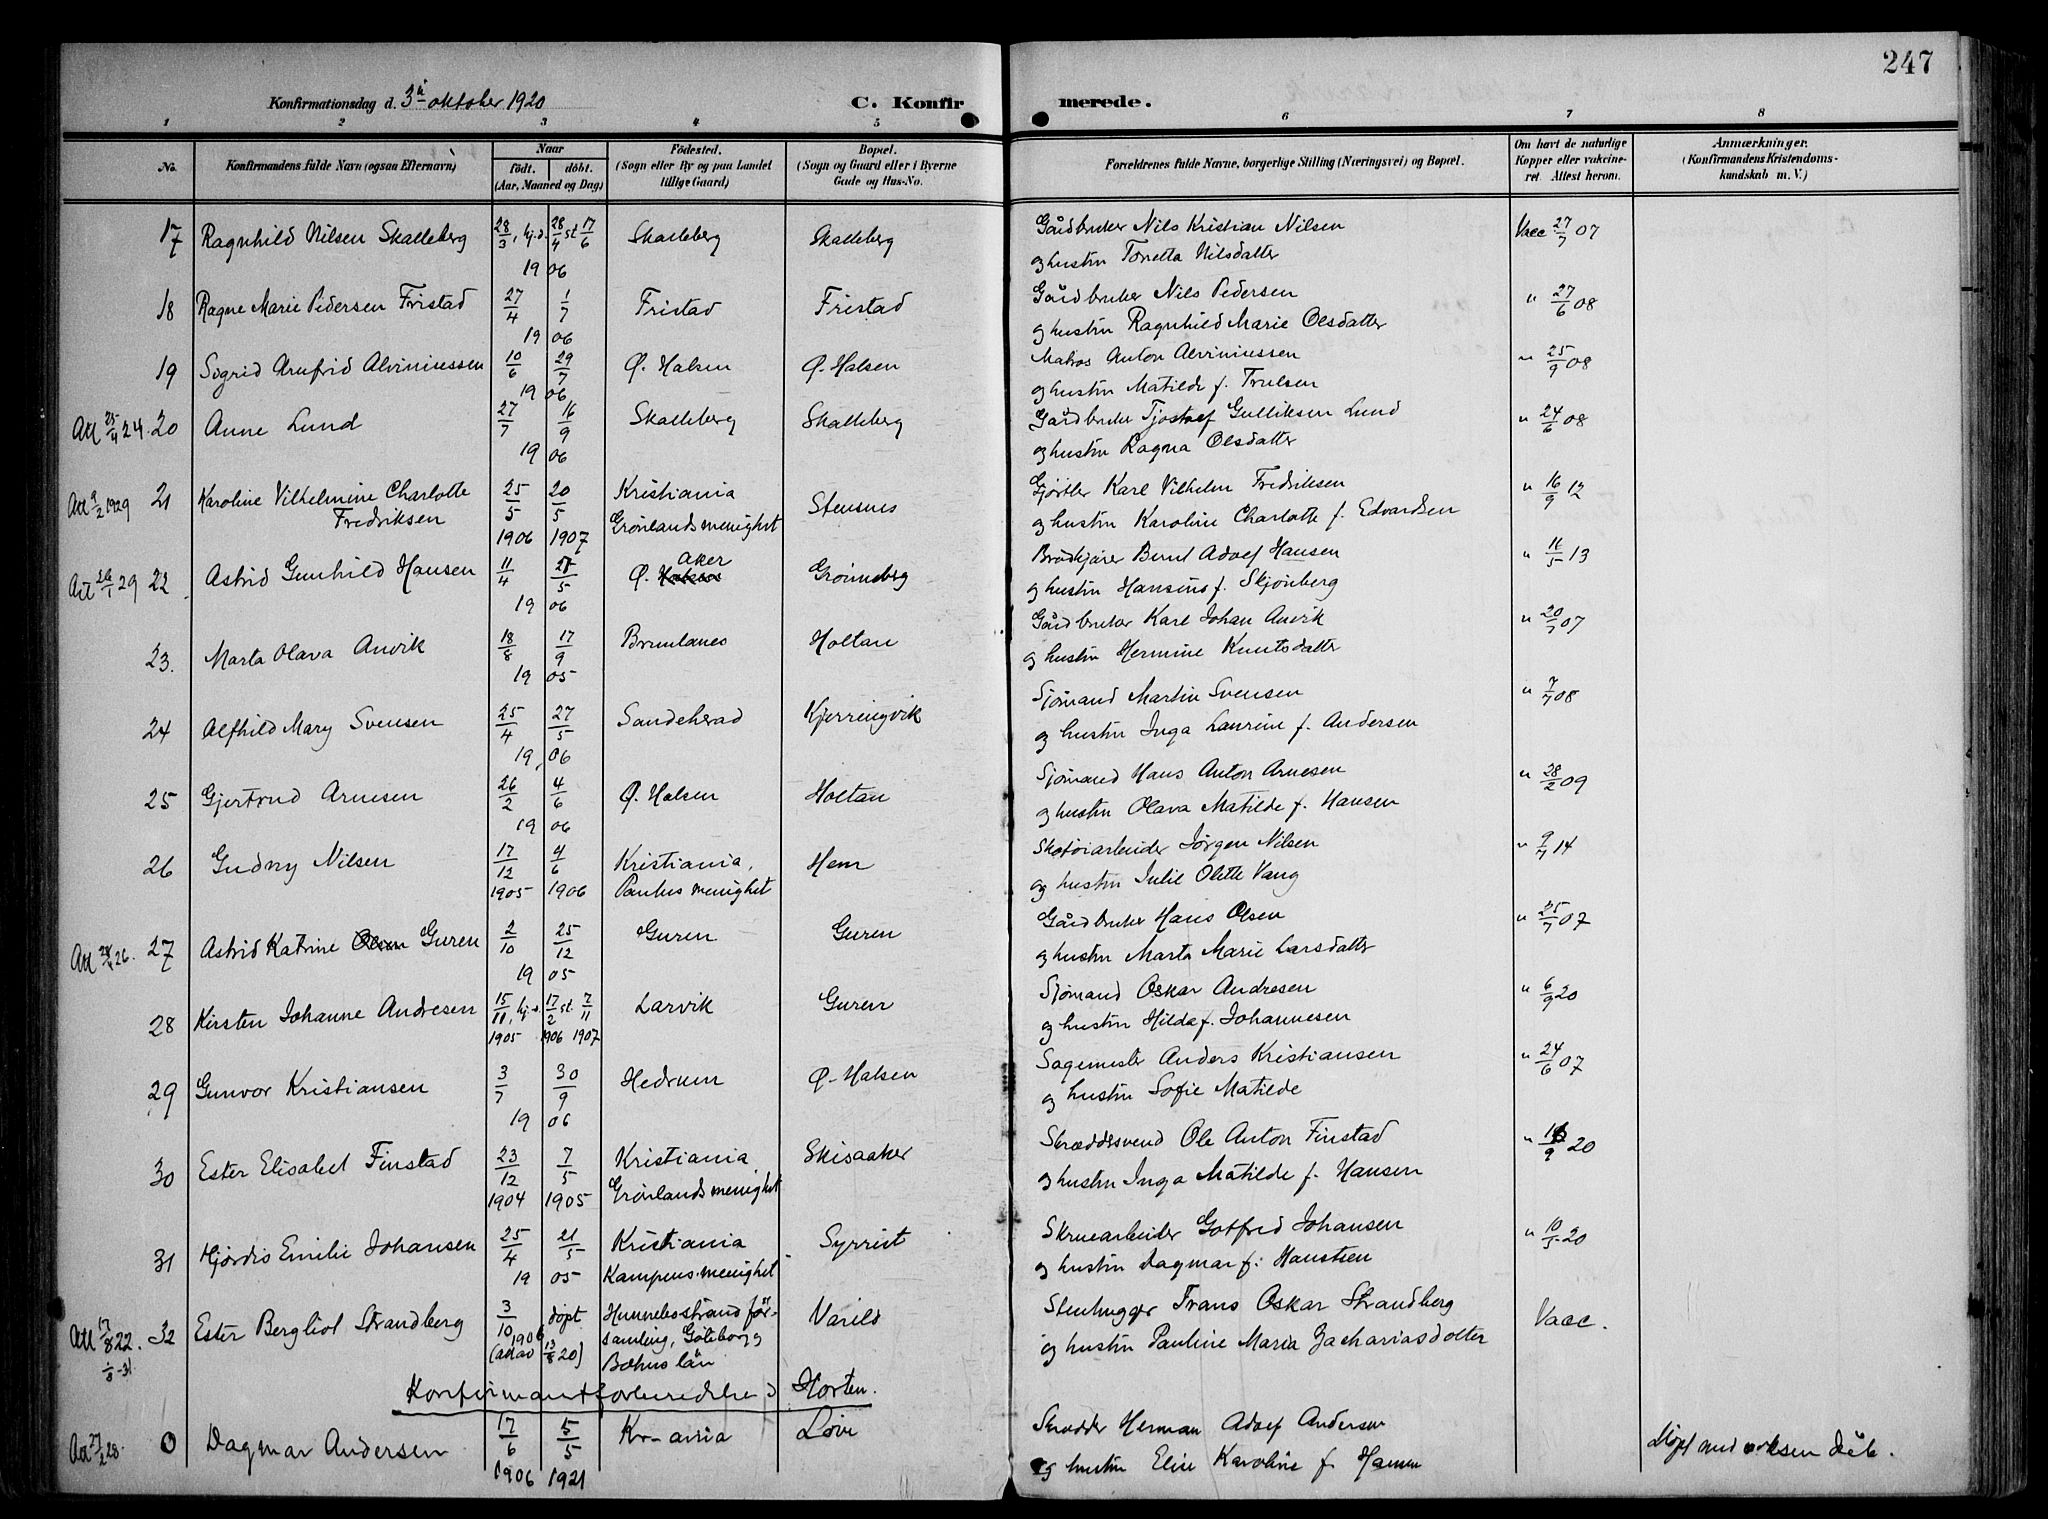 247
Konfirmationsdag d. 3die oktober 1920 C. Konfirmerede.
1 2 3 4 5 6 7 8
No. Konfirmandens fulde Navn (ogsaa Efternavn) Naar födt. döbt. (Aar, Maaned og Dag) Födested. (Sogn eller By og paa Landet tillige Gaard) Bopæl. (Sogn og Gaard eller i Byerne Gade og Hus-No. Forældrenes fulde Navne, borgerlige Stilling (Næringsvei) og Bopæl. Om havt de naturlige Kopper eller vaccineret. Attest herom. Anmærkninger. (Konfirmandens Kristendomskundskab m. V.)
17 Ragnhild Nilsen Skalleberg 28/3, hj.d. 28/4 st 17/6 Skalleberg Skalleberg Gårdbruker Nils Kristian Nilsen Vacc 27/7 07
1906 og hustru Tonetta Nilsdatter
18 Ragne Marie Pedersen Fristad 27/4 1/7 Fristad Fristad Gårdbruker Nils Pedersen " 27/6 08
1906 og hustru Ragnhild Marie Olsdatter
19 Sigrid Arnfrid Alviniussen 10/6 29/7 Ø. Halsen Ø. Halsen Matros Anton Alviniussen " 25/9 08
1906 og hustru Matilde f. Trulsen
Att 25/4 24. 20 Anne Lund 27/7 16/9 Skalleberg Skalleberg Gårdbruker Tjostolf Gulliksen Lund " 24/6 08
1906 og hustru Ragna Olsdatter
Att 9/2 1929 21 Karoline Vilhelmine Charlotte 25/5 20/5 Kristiania Stensnes Gjörtler Karl Vilhelm Fredriksen " 16/9 12
Fredriksen 1906 1907 Grönlands menighet og hustru Karoline Charlotte f. Edvardsen
Att 26/1 29 22 Astrid Gunhild Hansen 11/4 /5 Ø. Aker Grönneberg Brödkjörer Bernt Adolf Hansen " 11/5 13
1906 og hustru Hansine f. Skjönberg
23. Marta Olava Anvik 18/8 17/9 Brunlanes Holtan Gårdbruker Karl Johan Anvik " 20/7 07
1905 og hustru Hermine Knutsdatter
24 Alfhild Mary Svensen 25/4 27/5 Sandeherad Kjerringvik Sjömand Martin Svensen " 7/7 08
1906 og hustru Inga Laurine f. Andersen
25 Gjertrud Arnesen 26/2 4/6 Ø. Halsen Holtan Sjömand Hans Anton Arnesen " 28/2 09
1906 og hustru Olava Matilde f. Hansen
26 Gudny Nilsen 17/12 4/6 Kristiania, Hem Skotöiarbeider Jörgen Nilsen " 9/7 14
1905 1906 Paulus menighet og hustru Julie Olette Vang
Att 26. 27 Astrid Katrine Olsen Guren 2/10 25/12 Guren Guren Gårdbruker Hans Olsen " 25/7 07
1905 og hustru Marta Marie Larsdatter
28 Kirsten Johanne Andresen 15/11, hj.d. 17/2 st. 7/11 Larvik Guren Sjömand Oskar Andresen " 6/9 20
1905 1906 1907 og hustru Hilda f. Johannesen
29 Gunvor Kristiansen 3/7 30/9 Hedrum Ø. Halsen Sagemester Anders Kristiansen " 24/6 07
1906 og hustru Sofie Matilde
30 Ester Elisabet Finstad 23/12 7/5 Kristiania Skisaaker Skræddersvend Ole Anton Finstad " /9 20
1904 1905 Grönlands menighet og hustru Inga Matilde f. Hansen
31 Hjördis Emilie Johansen 25/4 21/5 Kristiania Syrrist Skruearbeider Gotfred Johansen " 10/5 20
1905 Kampens menighet og hustru Dagmar f. Hansteen
Att 17/8 22. 32 Ester Bergliot Strandberg 3/10 1906 döpt Hunnebostrand för- Varild Stenhugger Frans Oskar Strandberg Vacc.
(attest 13/8 20) samling, Göteborg og og hustru Pauline Maria Zachariasdotter
Bohus län
Konfirmantforberedelse i Horten.
Att 27/2 28. 0 Dagmar Andersen 17/6 5/5 Kr-ania Löve Skrædder Herman Adolf Andersen Döpt ved voksen dåb.
1906 1921 og hustru Elise Karoline f. Hansen